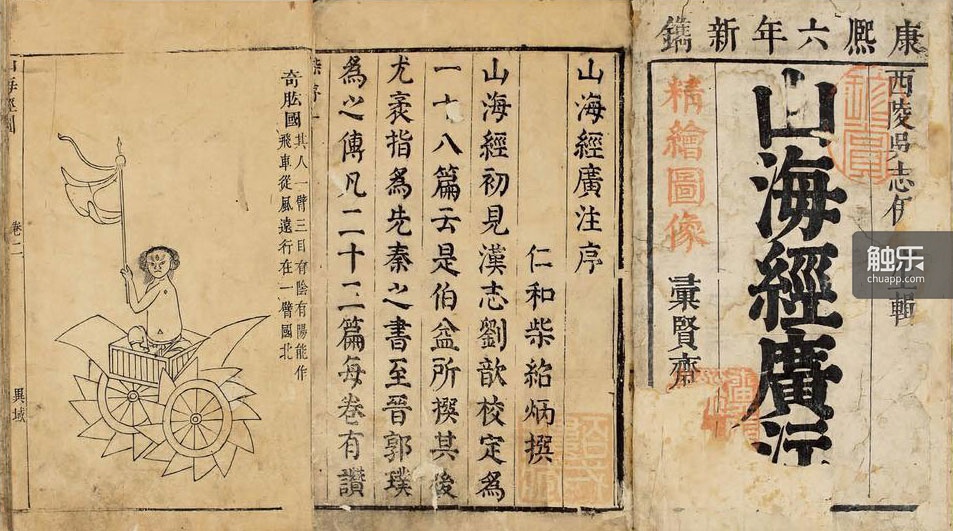 康熙六年新鐫
西陵吳志伊
輯
山海經廣注
精繪圖像
彙賢齋
山海經廣注序
仁和柴紹炳撰
山海經初見漢志劉歆校定為
一十八篇云是伯益所撰其後
尤袤指為先秦之書至晉郭璞
為之傳凡二十三篇每卷有讚
柴序
一
奇肱國
其人一臂三目有陰有陽能作
飛車從風遠行在一臂國北
山海經圖
卷二
異域
触乐
chuapp.com